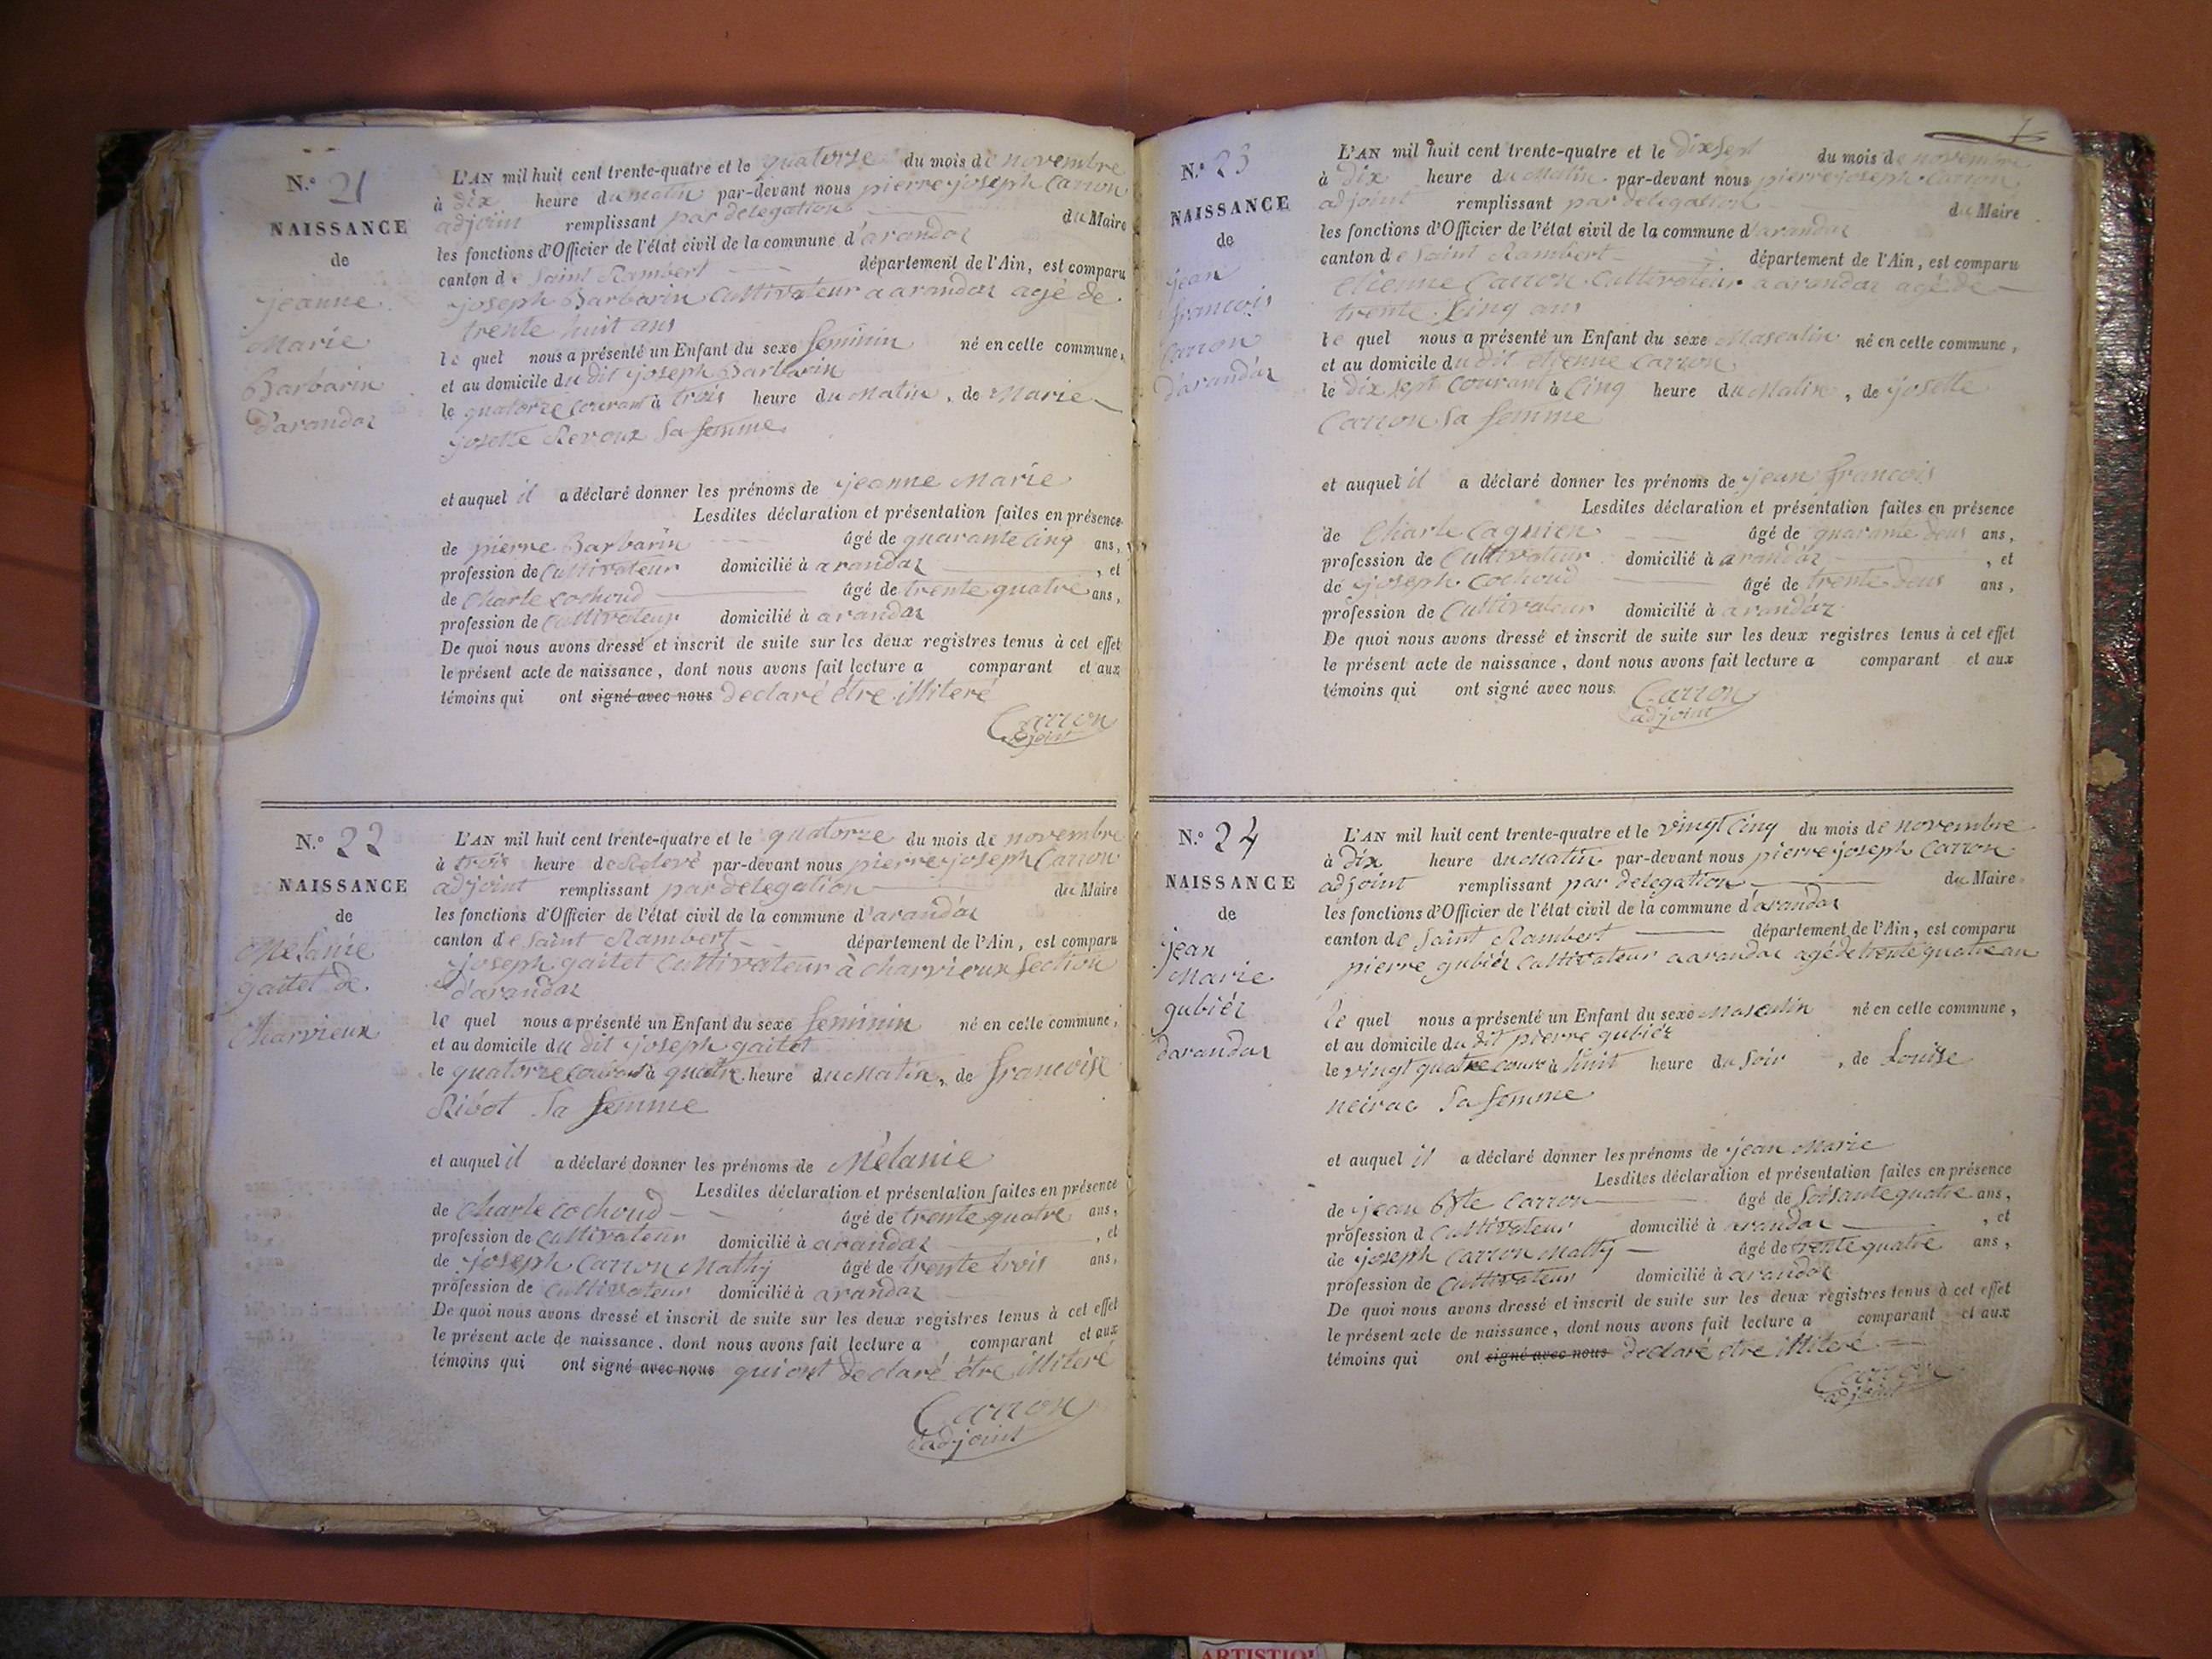 N.° 21
NAISSANCE
de
jeanne
Marie
Barbarin
d'arandaz
L'AN mil huit cent trente-quatre et le quatorze du mois de novembre
à dix heure du matin par-devant nous pierre joseph Carron
adjoint remplissant par delegation du Maire
les fonctions d'Officier de l'état civil de la commune d'arandaz
canton de Saint Rambert département de l'Ain, est comparu
joseph Barbarin Cultivateur a arandaz agé de
trente huit ans
le quel nous a présenté un Enfant du sexe feminin né en celle commune,
et au domicile du dit joseph Barbarin
le quatorze courant à trois heure du Matin, de Marie
josette Revoux sa femme
et auquel il a déclaré donner les prénoms de jeanne Marie
Lesdites déclaration et présentation faites en présence
de pierre Barbarin âgé de quarante cinq ans,
profession de Cultivateur domicilié à arandaz, et
de Charle Cochoud âgé de trente quatre ans,
profession de Cultivateur domicilié à arandaz
De quoi nous avons dressé et inscrit de suite sur les deux registres tenus à cet effet
le présent acte de naissance, dont nous avons fait lecture a comparant et aux
témoins qui ont signé avec nous declaré être illiteré
Carron
adjoint
N.° 22
NAISSANCE
de
Melanie
gaitet de
Charvieux
L'AN mil huit cent trente-quatre et le quatorze du mois de novembre
à trois heure de Relevé par-devant nous pierre joseph Carron
adjoint remplissant par delegation du Maire
les fonctions d'Officier de l'état civil de la commune d'arandaz
canton de Saint Rambert département de l'Ain, est comparu
joseph gaitet Cultivateur à Charvieux Section
d'arandaz
le quel nous a présenté un Enfant du sexe feminin né en celle commune,
et au domicile du dit joseph gaitet
le quatorze courant à quatre heure du Matin, de francoise
Ribot sa femme
et auquel il a déclaré donner les prénoms de Mélanie
Lesdites déclaration et présentation faites en présence
de Charle Cochoud âgé de trente quatre ans,
profession de Cultivateur domicilié à arandaz, et
de joseph Carron Mathy âgé de trente trois ans,
profession de Cultivateur domicilié à arandaz
De quoi nous avons dressé et inscrit de suite sur les deux registres tenus à cet effet
le présent acte de naissance, dont nous avons fait lecture a comparant et aux
témoins qui ont signé avec nous qui ont declaré être illiteré
Carron
adjoint
N.° 23
NAISSANCE
de
jean
francois
Carron
d'arandaz
L'AN mil huit cent trente-quatre et le dix sept du mois de novembre
à dix heure du Matin par-devant nous pierre joseph Carron
adjoint remplissant par delegation du Maire
les fonctions d'Officier de l'état civil de la commune d'arandaz
canton de Saint Rambert département de l'Ain, est comparu
etienne Carron Cultivateur a arandaz agé de
trente cinq ans
le quel nous a présenté un Enfant du sexe Masculin né en celle commune,
et au domicile du dit etienne Carron
le dix sept courant à cinq heure du Matin, de josette
Carron sa femme
et auquel il a déclaré donner les prénoms de jean francois
Lesdites déclaration et présentation faites en présence
de Charle Cagnien âgé de quarante deux ans,
profession de Cultivateur domicilié à arandaz, et
de joseph Cochoud âgé de trente deux ans,
profession de Cultivateur domicilié à arandaz
De quoi nous avons dressé et inscrit de suite sur les deux registres tenus à cet effet
le présent acte de naissance, dont nous avons fait lecture a comparant et aux
témoins qui ont signé avec nous. Carron
adjoint
N.° 24
NAISSANCE
de
jean
Marie
gubiéz
d'arandaz
L'AN mil huit cent trente-quatre et le vingt cinq du mois de novembre
à dix heure du Matin par-devant nous pierre joseph Carron
adjoint remplissant par delegation du Maire
les fonctions d'Officier de l'état civil de la commune d'arandaz
canton de Saint Rambert département de l'Ain, est comparu
pierre gubiéz Cultivateur a arandaz agé de trente quatre an
le quel nous a présenté un Enfant du sexe Masculin né en celle commune,
et au domicile du dit pierre gubiéz
le vingt quatre cour à huit heure du soir, de Louise
neirac sa femme
et auquel il a déclaré donner les prénoms de jean Marie
Lesdites déclaration et présentation faites en présence
de jean Bste Carron âgé de soisante quatre ans,
profession d Cultivateur domicilié à arandaz, et
de joseph Carron Mathy âgé de trente quatre ans,
profession de Cultivateur domicilié à arandaz
De quoi nous avons dressé et inscrit de suite sur les deux registres tenus à cet effet
le présent acte de naissance, dont nous avons fait lecture a comparant et aux
témoins qui ont signé avec nous declaré être illiteré
Carron
adjoint